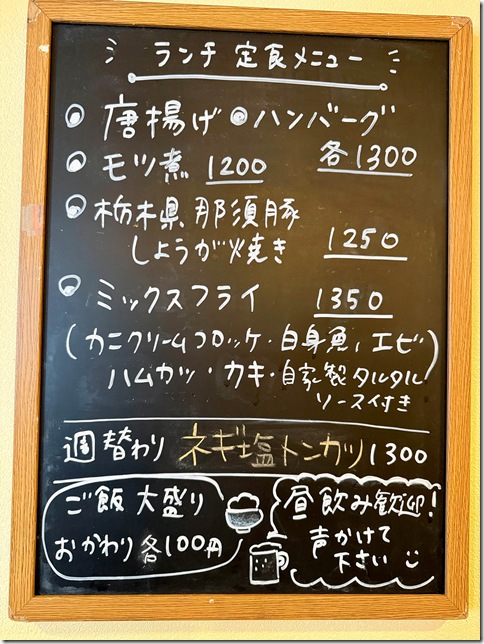 ランチ 定食メニュー
唐揚げ ハンバーグ
各1300
モツ煮 1200
栃木県那須豚
しょうが焼き 1250
ミックスフライ 1350
(カニクリームコロッケ・白身魚、エビ
ハムカツ・カキ・自家製タルタル)
ソース付き
週替わり ネギ塩トンカツ 1300
ご飯 大盛り
おかわり 各100円
昼飲み歓迎!
声かけて
下さい